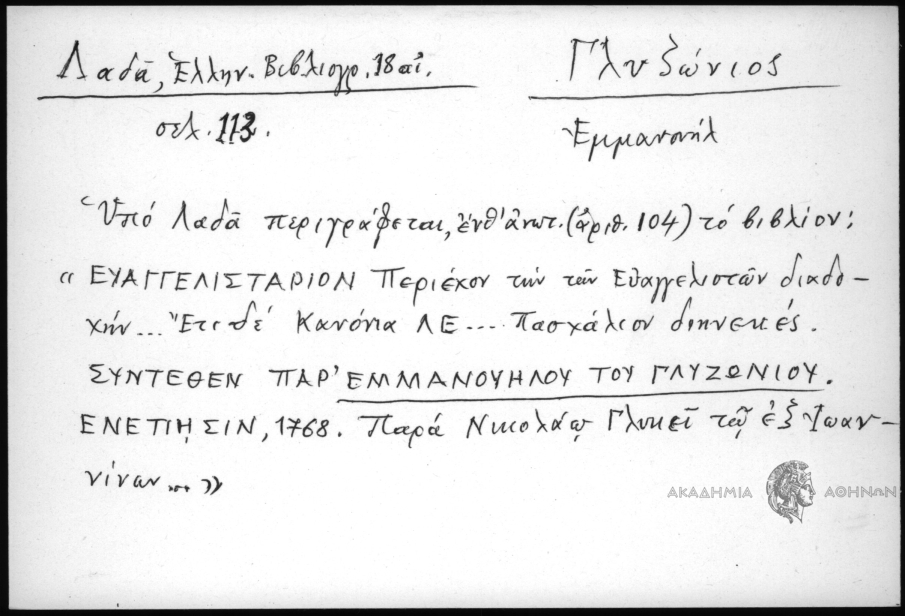 Λαδᾶ, Ἑλλην. Βιβλιογρ. 18 αἰ.
Γλυζώνιος
σελ. 113.
Ἐμμανουήλ
Ὑπό Λαδᾶ περιγράφεται, ἐνθ' ἀνωτ. (ἀριθ. 104) τό βιβλίον:
« ΕΥΑΓΓΕΛΙΣΤΑΡΙΟΝ Περιέχον τήν τῶν Εὐαγγελιστῶν διαδο-
χήν... Ἔτι δέ Κανόνια ΛΕ... Πασχάλιον διηνεκές.
ΣΥΝΤΕΘΕΝ ΠΑΡ' ΕΜΜΑΝΟΥΗΛΟΥ ΤΟΥ ΓΛΥΖΩΝΙΟΥ.
ΕΝΕΤΙΗΣΙΝ, 1768. Παρά Νικολάῳ Γλυκεῖ τῷ ἐξ Ἰωαν-
νίνων... »
ΑΚΑΔΗΜΙΑ ΑΘΗΝΩΝ